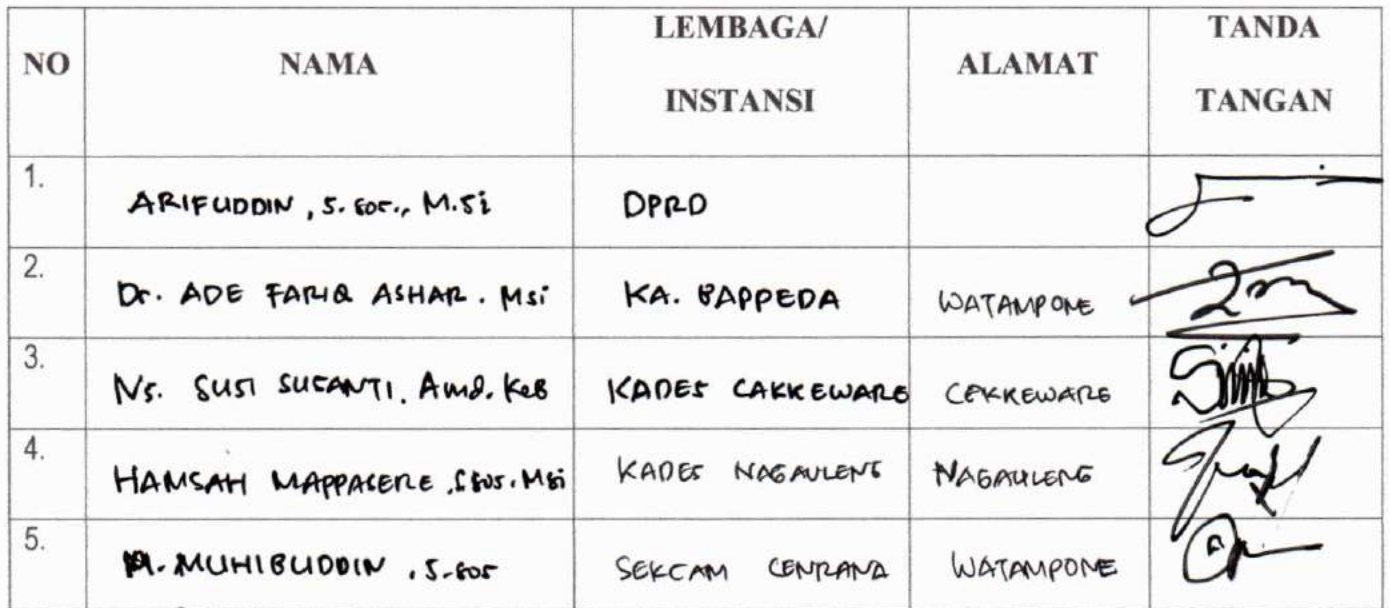 NO NAMA LEMBAGA/ INSTANSI ALAMAT TANDA TANGAN
1. ARIFUDDIN, S. Sos., M.Si DPRD
2. Dr. ADE FARIQ ASHAR. Msi KA. BAPPEDA WATAMPONE
3. Ns. SUSI SUSANTI. Amd. Keb KADES CAKKEWARE CEKKEWARE
4. HAMSAH MAPPASERE .S Sos. MSi KADES NAGAULENG NAGAULENG
5. A. MUHIBUDDIN . S-Sos SEKCAM CENRANA WATAMPONE